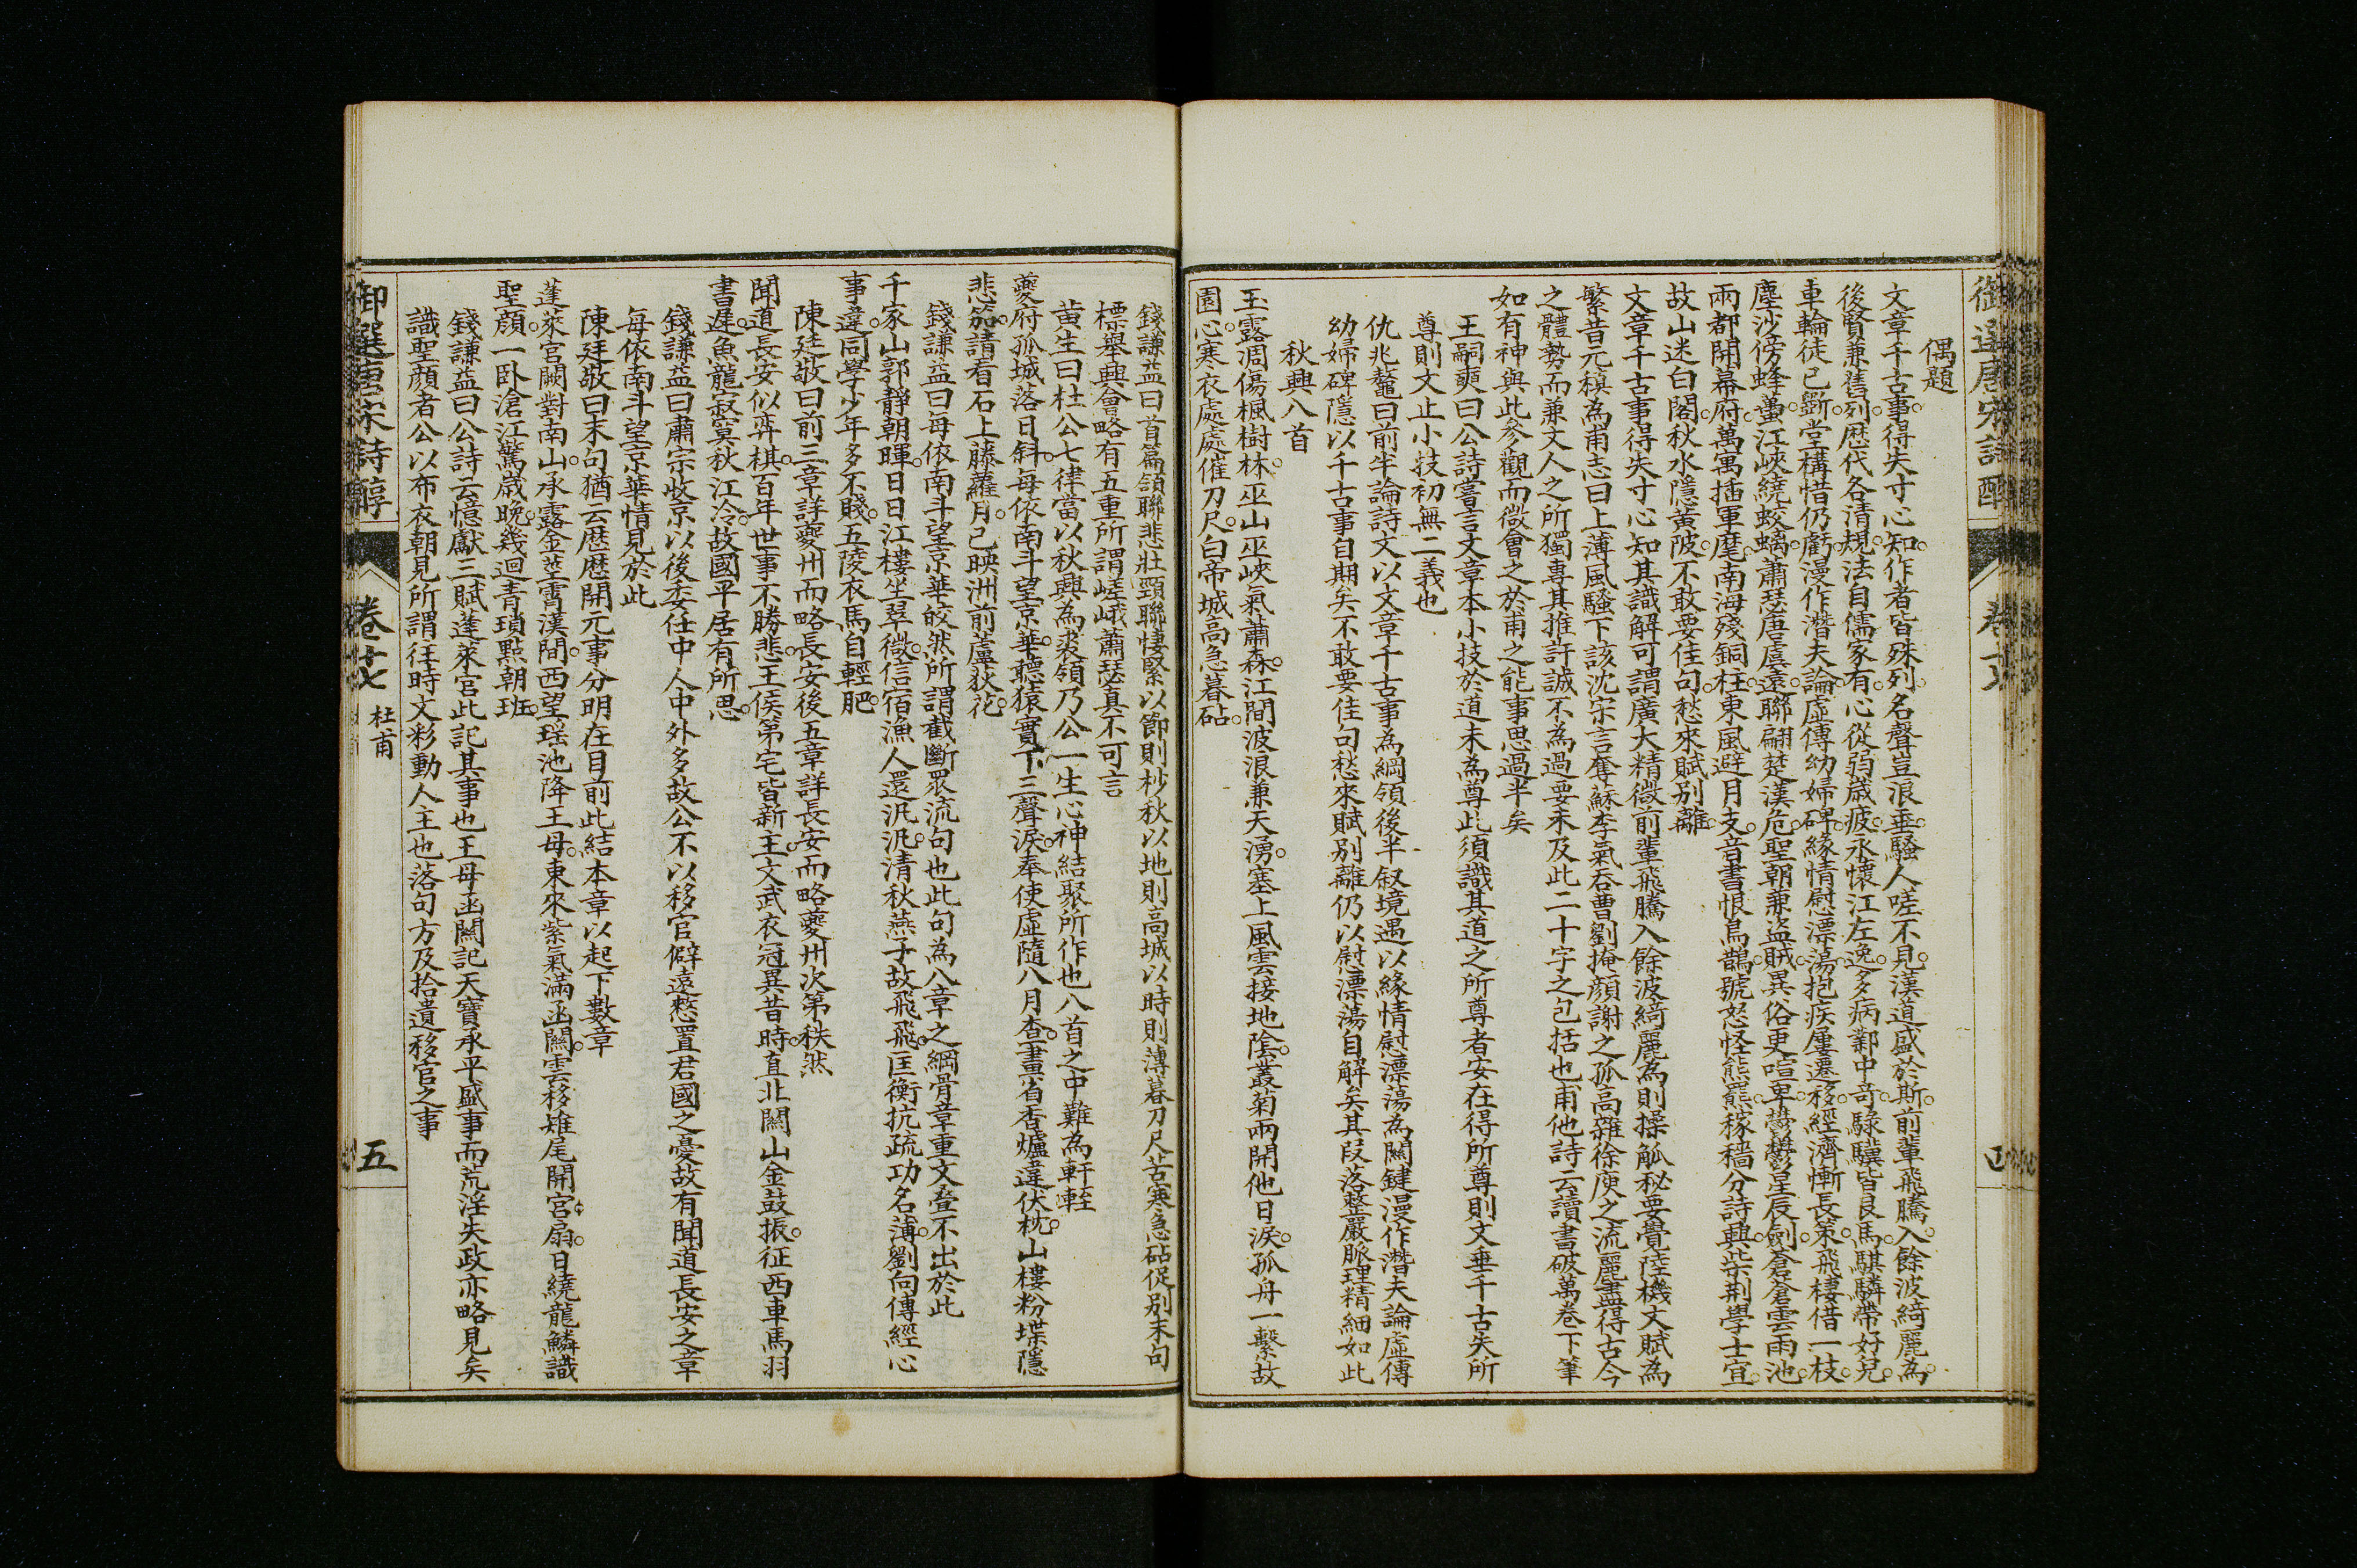 御選唐宋詩醇
偶題
文章千古事得失寸心知作者皆殊列名聲豈浪垂騷人嗟不見漢道盛於斯前輩飛騰入餘波綺麗為
後賢兼舊列歷代各清規法自儒家有心從弱歲疲永懷江左逸多病鄴中奇騄驥皆良馬騏驎帶好兒
車輪徒已斲堂構惜仍虧漫作潛夫論虛傳幼婦碑緣情慰漂蕩抱疾屢遷移經濟慚長策飛棲借一枝
塵沙傍蜂蠆江峽繞蛟螭蕭瑟唐虞遠聯翩楚漢危聖朝兼盜賊異俗更喧卑鬱鬱星辰劍蒼蒼雲雨池
兩都開幕府萬寓插軍麾南海殘銅柱東風避月支音書恨烏鵲號怒怪熊羆稼穡分詩興柴荊學士宜
故山迷白閣秋水隱黃陂不敢要佳句愁來賦別離
文章千古事得失寸心知其識解可謂廣大精微前輩飛騰入餘波綺麗為則操觚秘要覺陸機文賦為
繁昔元稹為甫志曰上薄風騷下該沈宋言奪蘇李氣吞曹劉掩顏謝之孤高雜徐庾之流麗盡得古今
之體勢而兼文人之所獨專其推許誠不為過要未及此二十字之包括也甫他詩云讀書破萬卷下筆
如有神與此參觀而微會之於甫之能事思過半矣
王嗣奭曰公詩嘗言文章本小技於道未為尊此須識其道之所尊者安在得所尊則文垂千古失所
尊則文止小技初無二義也
仇兆鼇曰前半論詩文以文章千古事為綱領後半叙境遇以緣情慰漂蕩為關鍵漫作潛夫論虛傳
幼婦碑隱以千古事自期矣不敢要佳句愁來賦別離仍以慰漂蕩自解矣其段落整嚴脈理精細如此
秋興八首
玉露凋傷楓樹林巫山巫峽氣蕭森江間波浪兼天湧塞上風雲接地陰叢菊兩開他日淚孤舟一繫故
園心寒衣處處催刀尺白帝城高急暮砧
錢謙益曰首篇頷聯悲壯頸聯悽緊以節則杪秋以地則高城以時則薄暮刀尺苦寒急砧促別末句
標舉興會略有五重所謂嵯峨蕭瑟真不可言
黃生曰杜公七律當以秋興為裘領乃公一生心神結聚所作也八首之中難為軒輊
夔府孤城落日斜每依南斗望京華聽猿實下三聲淚奉使虛隨八月查畫省香爐違伏枕山樓粉堞隱
悲笳請看石上藤蘿月已映洲前蘆荻花
錢謙益曰每依南斗望京華皎然所謂截斷眾流句也此句為八章之綱骨章重文叠不出於此
千家山郭靜朝暉日日江樓坐翠微信宿漁人還汎汎清秋燕子故飛飛匡衡抗疏功名薄劉向傳經心
事違同學少年多不賤五陵衣馬自輕肥
陳廷敬曰前三章詳夔州而略長安後五章詳長安而略夔州次第秩然
聞道長安似弈棋百年世事不勝悲王侯第宅皆新主文武衣冠異昔時直北關山金鼓振征西車馬羽
書遲魚龍寂寞秋江冷故國平居有所思
錢謙益曰肅宗收京以後委任中人中外多故公不以移官僻遠愁置君國之憂故有聞道長安之章
每依南斗望京華情見於此
陳廷敬曰末句猶云歷歷開元事分明在目前此結本章以起下數章
蓬萊宮闕對南山承露金莖霄漢間西望瑤池降王母東來紫氣滿函關雲移雉尾開宮扇日繞龍鱗識
聖顏一卧滄江驚歲晚幾迴青瑣點朝班
錢謙益曰公詩云憶獻三賦蓬萊宮此記其事也王母函關記天寶承平盛事而荒淫失政亦略見矣
識聖顏者公以布衣朝見所謂往時文彩動人主也落句方及拾遺移官之事
御選唐宋詩醇 卷十七 杜甫 五